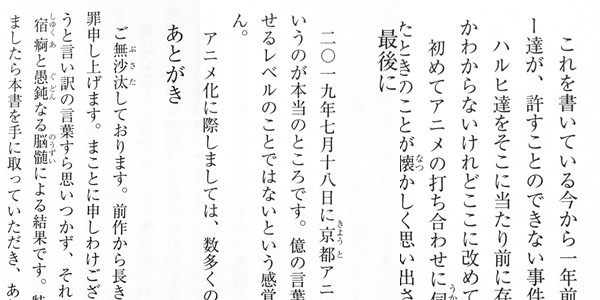 これを書いている今から一年前
ー達が、許すことのできない事件
ハルヒ達をそこに当たり前に存
かわからないけれどここに改めて
初めてアニメの打ち合わせに伺
たときのことが懐かしく思い出さ
最後に
二〇一九年七月十八日に京都アニ
いうのが本当のところです。億の言葉
せるレベルのことではないという感覚
ん。
アニメ化に際しましては、数多くの
あとがき
ご無沙汰しております。前作から長き
罪申し上げます。まことに申しわけござ
うと言い訳の言葉すら思いつかず、それ
宿痾と愚鈍なる脳髄による結果です。
ましたら本書を手に取っていただき、あ